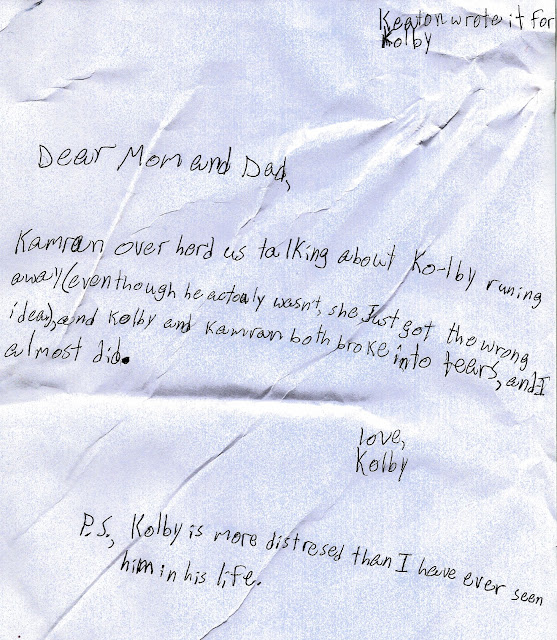 Keaton wrote it for
Kolby
Dear Mom and Dad,
Kamran over herd us talking about Ko-lby runing
away (eventhough he actualy wasn't, she Just got the wrong
idea), and Kolby and Kamran both broke into tears, and I
almost did.
love,
Kolby
P.S., Kolby is more distresed than I have ever seen
him in his life.